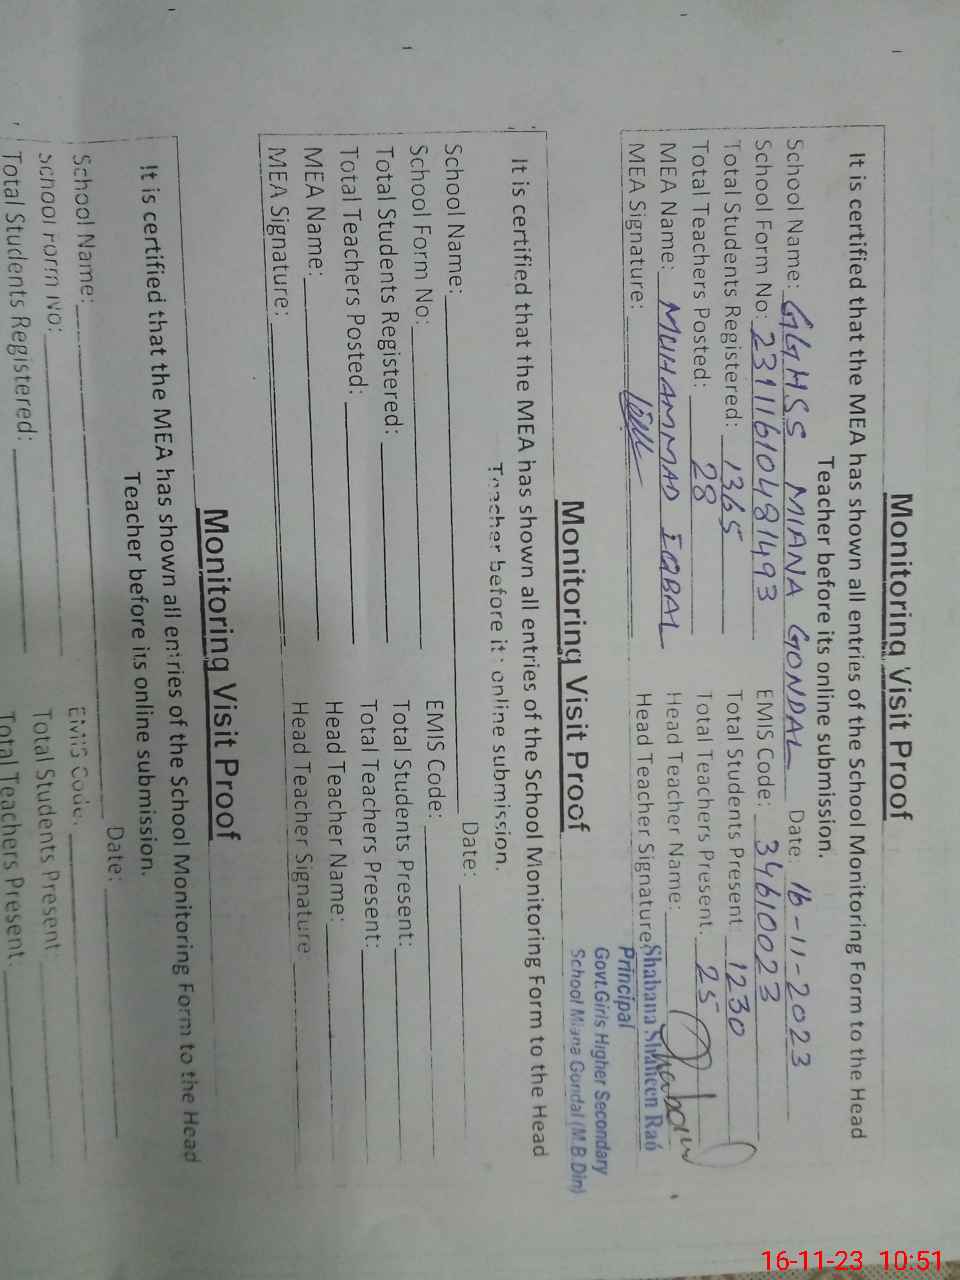 Monitoring Visit Proof
It is certified that the MEA has shown all entries of the School Monitoring Form to the Head
Teacher before its online submission.
School Name: GGHSS MIANA GONDAL Date: 16-11-2023
School Form No: 23111610481493 EMIS Code: 34610023
Total Students Registered: 1365 Total Students Present: 1230
Total Teachers Posted: 28 Total Teachers Present: 25
MEA Name: MUHAMMAD IQBAL Head Teacher Name:
MEA Signature: Head Teacher Signature:
Shabana Shaheen Rao
Principal
Govt.Girls Higher Secondary
School Miana Gondal (M.B.Din)
Monitoring Visit Proof
It is certified that the MEA has shown all entries of the School Monitoring Form to the Head
Teacher before its online submission.
School Name: Date:
School Form No: EMIS Code:
Total Students Registered: Total Students Present:
Total Teachers Posted: Total Teachers Present:
MEA Name: Head Teacher Name:
MEA Signature: Head Teacher Signature
Monitoring Visit Proof
It is certified that the MEA has shown all entries of the School Monitoring Form to the Head
Teacher before its online submission.
School Name: Date:
School Form No: EMIS Code:
Total Students Registered: Total Students Present:
Total Teachers Present:
16-11-23 10:51